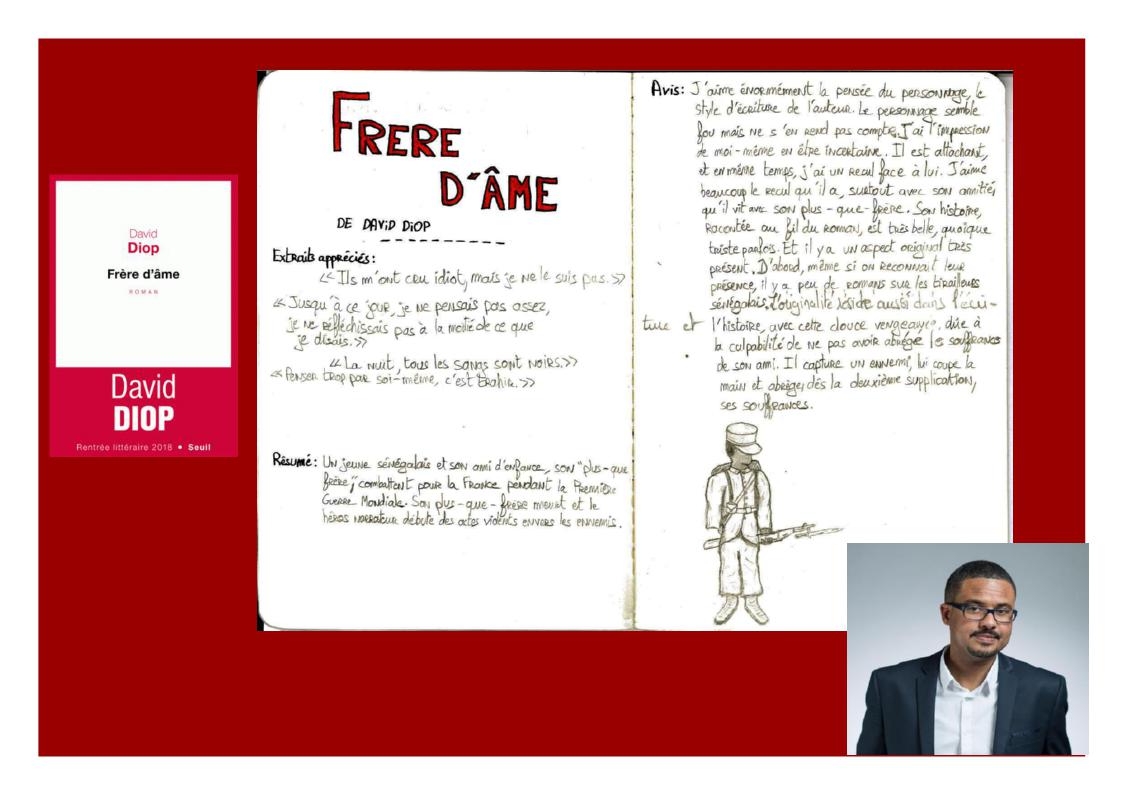 David
Diop
Frère d'âme
ROMAN
David
DIOP
Rentrée littéraire 2018 • Seuil
FRERE
D'ÂME
DE DAVID DIOP
Extraits appréciés:
<< Ils m'ont cru idiot, mais je ne le suis pas. >>
<< Jusqu'à ce jour, je ne pensais pas assez,
je ne réfléchissais pas à la moitié de ce que
je disais. >>
<< La nuit, tous les sangs sont noirs. >>
<< Penser trop par soi-même, c'est trahir. >>
Résumé: Un jeune sénégalais et son ami d'enfance, son "plus-que
frère", combattent pour la France pendant la Première
Guerre Mondiale. Son plus-que-frère meurt et le
héros narrateur débute des actes violents envers les ennemis.
Avis: J'aime énormément la pensée du personnage, le
style d'écriture de l'auteur. Le personnage semble
fou mais ne s'en rend pas compte. J'ai l'impression
de moi-même en être incertaine. Il est attachant,
et en même temps, j'ai un recul face à lui. J'aime
beaucoup le recul qu'il a, surtout avec son amitié,
qu'il vit avec son plus-que-frère. Son histoire,
racontée au fil du roman, est très belle, quoique
triste parfois. Et il y a un aspect original très
présent. D'abord, même si on reconnaît leur
présence, il y a peu de romans sur les tirailleurs
sénégalais. L'originalité réside aussi dans l'écri-
ture et l'histoire, avec cette douce vengeance, dûe à
la culpabilité de ne pas avoir abrégé les souffrances
de son ami. Il capture un ennemi, lui coupe la
main et abrège, dès la deuxième supplication,
ses souffrances.